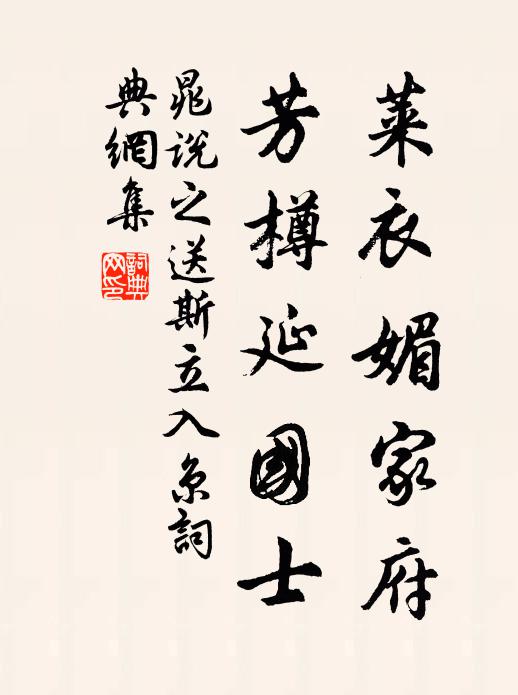 萊衣媚家府
芳樽延國士
晁說之送斯立入京詞
典網集
詞典网印